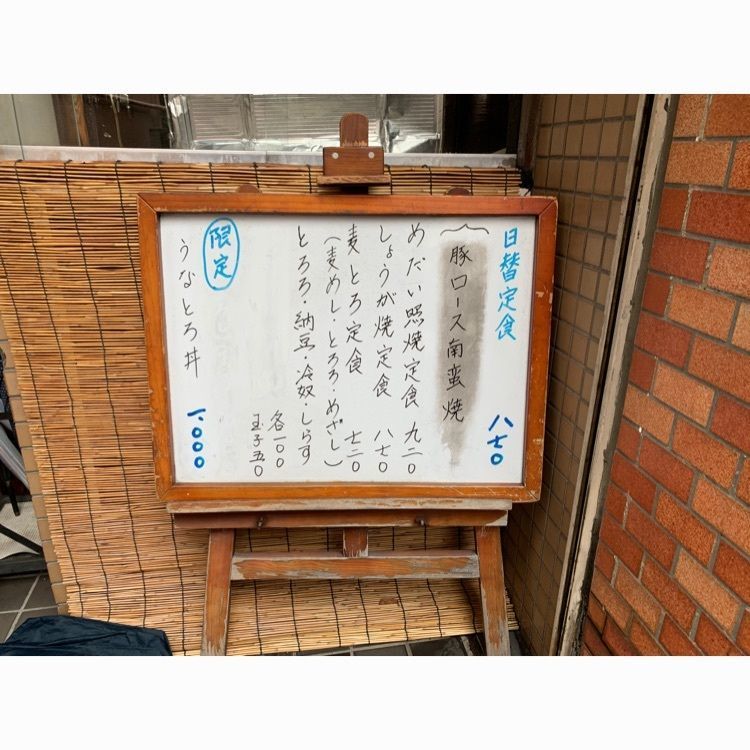 日替定食 八七〇
豚ロース南蛮焼
めだい照焼定食 九二〇
しょうが焼定食 八七〇
麦とろ定食 七二〇
(麦めし・とろろ・めざし)
とろろ・納豆・冷奴・しらす
各一〇〇
玉子五〇
限定
うなとろ丼 一、〇〇〇